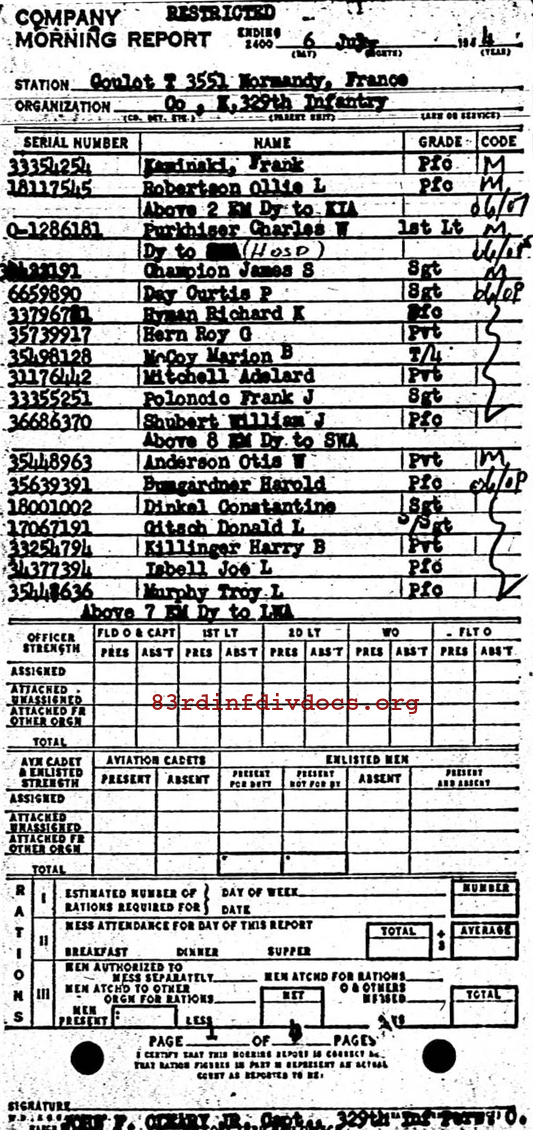 COMPANY RESTRICTED
MORNING REPORT ENDING 2400 6 July 1944
(DAY) (MONTH) (YEAR)
STATION Goulot T 3551 Normandy, France
ORGANIZATION Co , K,329th Infantry
(CO. DET. ETC.) (PARENT UNIT) (ARM OR SERVICE)
SERIAL NUMBER NAME GRADE CODE
33354254 Kaminski, Frank Pfc M
18117545 Robertson Ollie L Pfc M
Above 2 EM Dy to KIA 06/07
O-1286181 Purkhiser Charles W 1st Lt M
Dy to (HOSP)
Champion James S Sgt M
6659890 Day Curtis P Sgt 06/0P
Hyman Richard K Pfc
35739917 Hern Roy G Pvt
35498128 McCoy Marion B T/4
31176442 Mitchell Adelard Pvt
33355251 Poloncic Frank J Sgt
36686370 Shubert William J Pfc
Above 8 EM Dy to SWA
35448963 Anderson Otis W Pvt M
35639391 Bumgardner Harold Pfc 06/0P
18001002 Dinkel Constantine Sgt
17067191 Gitsch Donald L S/Sgt
33254794 Killinger Harry B Pvt
34377394 Isbell Joe L Pfc
35448636 Murphy Troy L Pfc
Above 7 EM Dy to LWA
OFFICER STRENGTH FLD O & CAPT 1ST LT 2D LT WO FLT O
PRES ABS'T PRES ABS'T PRES ABS'T PRES ABS'T PRES ABS'T
ASSIGNED
ATTACHED UNASSIGNED
ATTACHED FR OTHER ORGN
83rdinfdivdocs.org
TOTAL
AVN CADET & ENLISTED STRENGTH AVIATION CADETS ENLISTED MEN
PRESENT ABSENT PRESENT FOR DUTY PRESENT NOT FOR DY ABSENT PRESENT AND ABSENT
ASSIGNED
ATTACHED UNASSIGNED
ATTACHED FR OTHER ORGN
TOTAL
RATIONS
I ESTIMATED NUMBER OF RATIONS REQUIRED FOR } DAY OF WEEK NUMBER
DATE
II MESS ATTENDANCE FOR DAY OF THIS REPORT TOTAL ÷ 3 AVERAGE
BREAKFAST DINNER SUPPER
III MEN AUTHORIZED TO MESS SEPARATELY MEN ATCHD FOR RATIONS
MEN ATCH'D TO OTHER ORGN FOR RATIONS NET O & OTHERS MESSED TOTAL
MEN PRESENT LESS
PAGE 1 OF PAGES
I CERTIFY THAT THIS MORNING REPORT IS CORRECT
THAT RATION FIGURES IN PART III REPRESENT AN ACTUAL
COUNT AS REPORTED TO ME:
SIGNATURE
JOHN F. OLEARY JR, Capt., 329th Inf O.